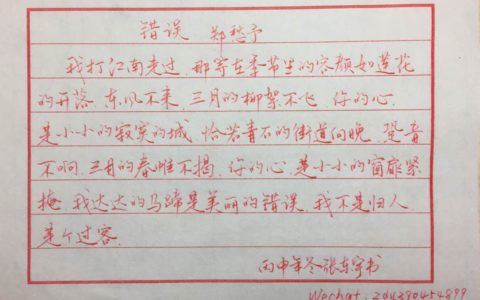 错误 郑愁予
我打江南走过,那等在季节里的容颜如莲花
的开落,东风不来,三月的柳絮不飞,你的心,
是小小的寂寞的城,恰若青石的街道向晚,跫音
不响,三月的春帷不揭,你的心,是小小的窗扉紧
掩,我达达的马蹄是美丽的错误,我不是归人
是个过客.
丙申年冬 张东宇书
Wechat: zdy290454899